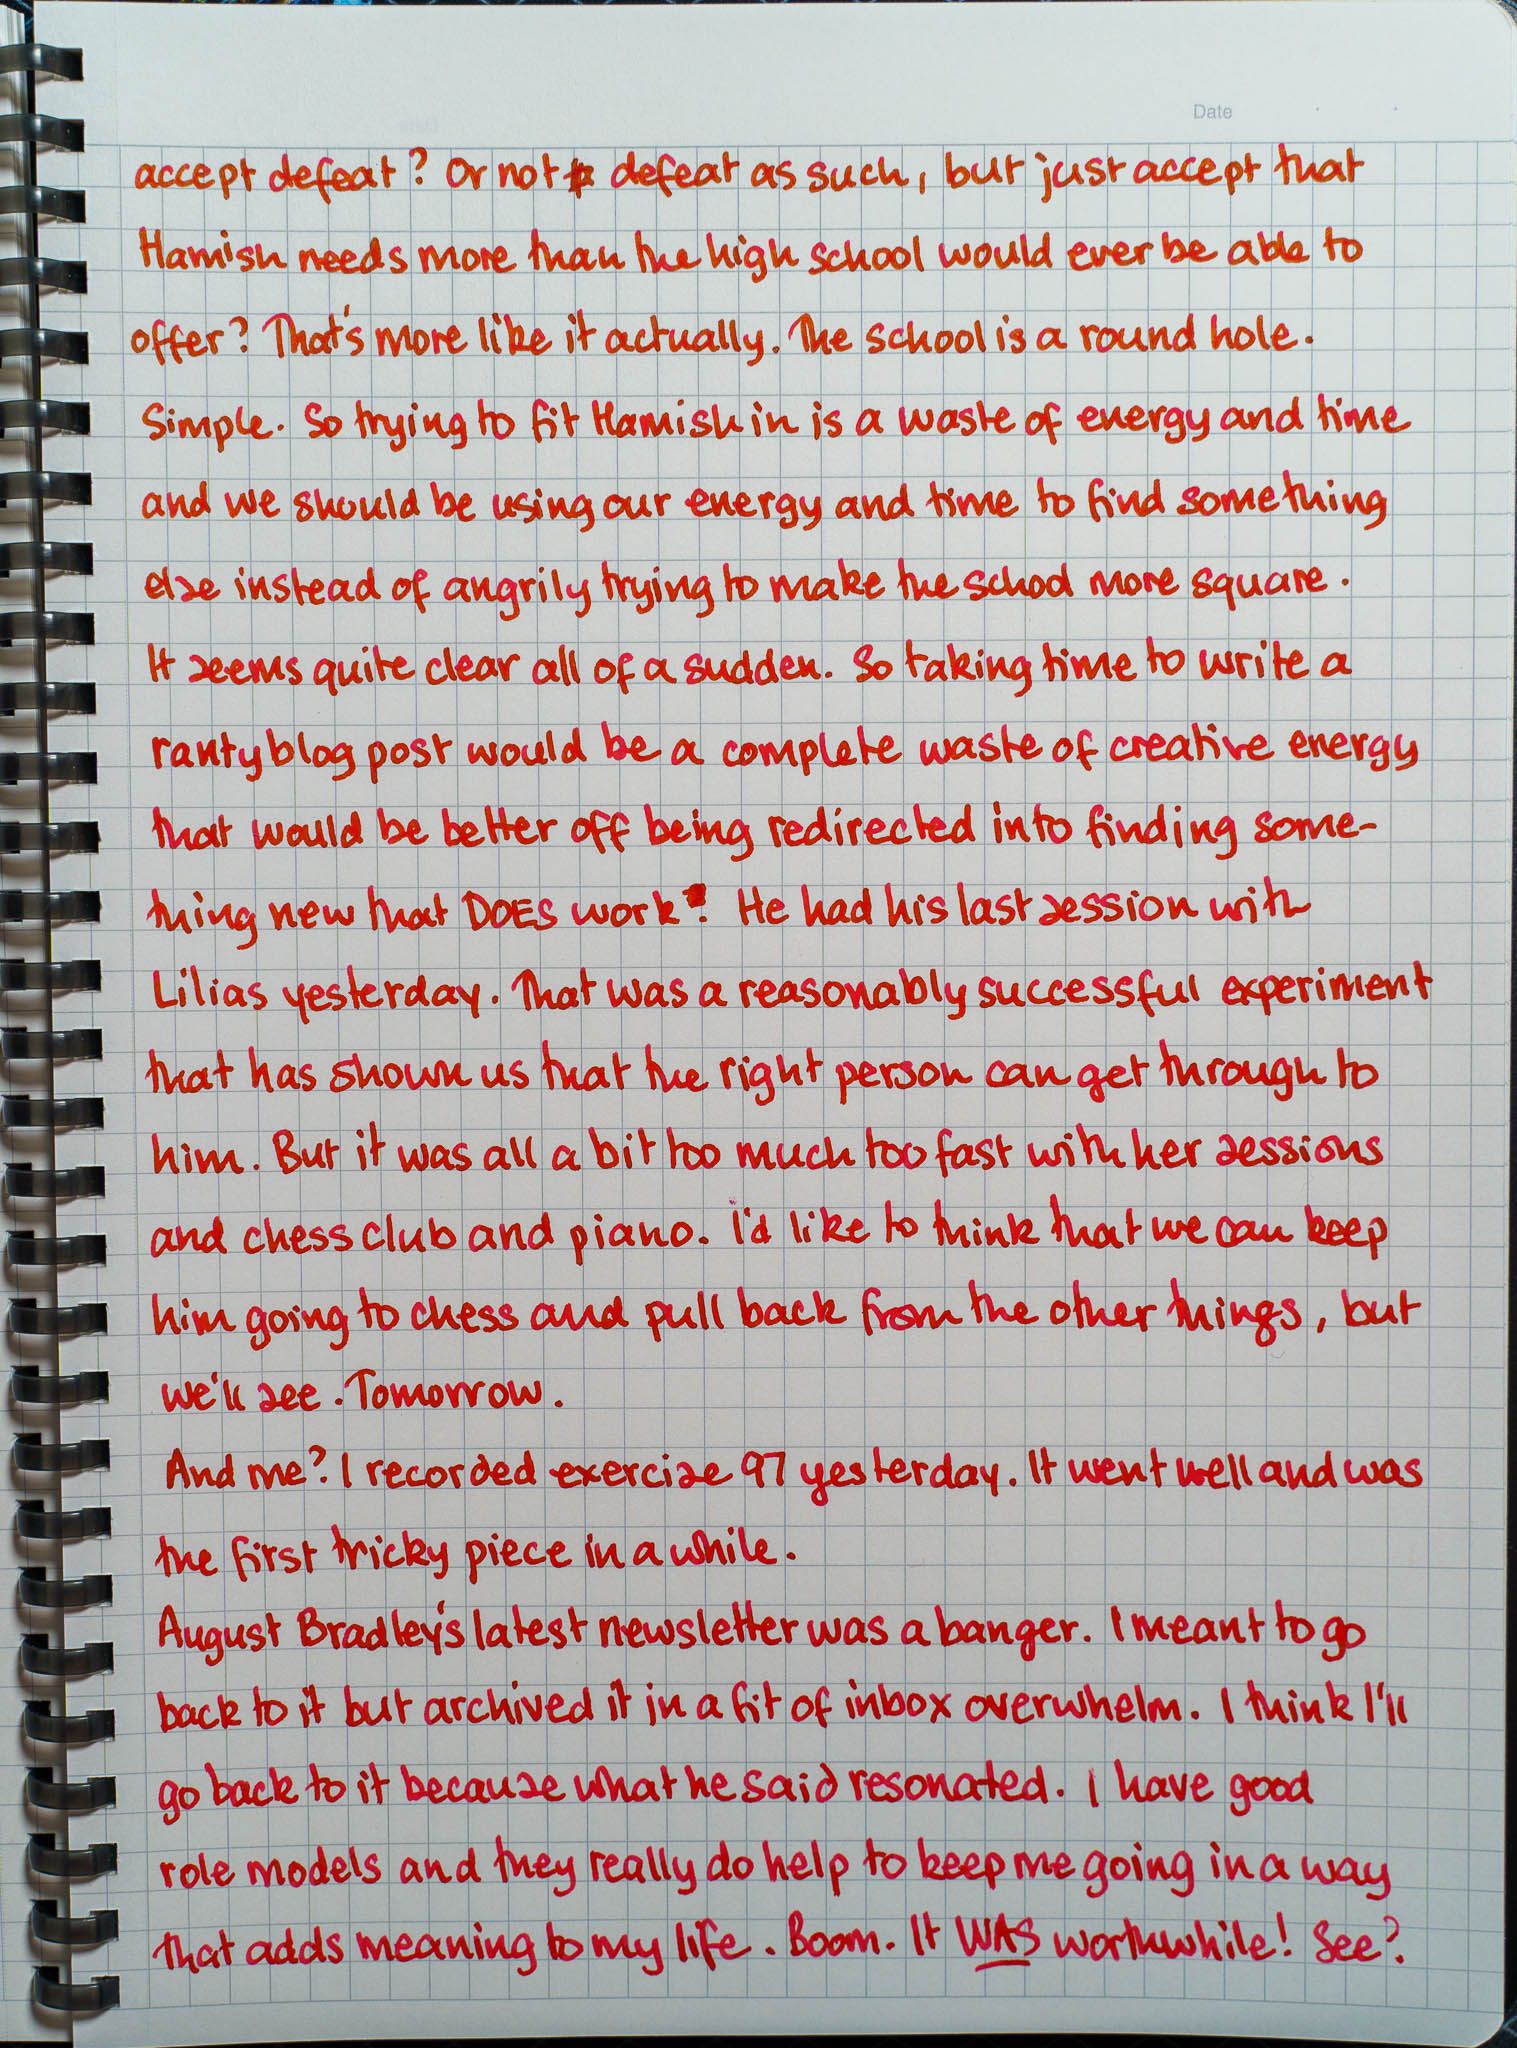 Date
accept defeat? Or not defeat as such, but just accept that
Hamish needs more than the high school would ever be able to
offer? That's more like it actually. The school is a round hole.
Simple. So trying to fit Hamish in is a waste of energy and time
and we should be using our energy and time to find something
else instead of angrily trying to make the school more square.
It seems quite clear all of a sudden. So taking time to write a
ranty blog post would be a complete waste of creative energy
that would be better off being redirected into finding some-
thing new that DOES work. He had his last session with
Lilias yesterday. That was a reasonably successful experiment
that has shown us that the right person can get through to
him. But it was all a bit too much too fast with her sessions
and chess club and piano. I'd like to think that we can keep
him going to chess and pull back from the other things, but
we'll see. Tomorrow.
And me? I recorded exercise 97 yesterday. It went well and was
the first tricky piece in a while.
August Bradley's latest newsletter was a banger. I meant to go
back to it but archived it in a fit of inbox overwhelm. I think I'll
go back to it because what he said resonated. I have good
role models and they really do help to keep me going in a way
that adds meaning to my life. Boom. It WAS worthwhile! See?